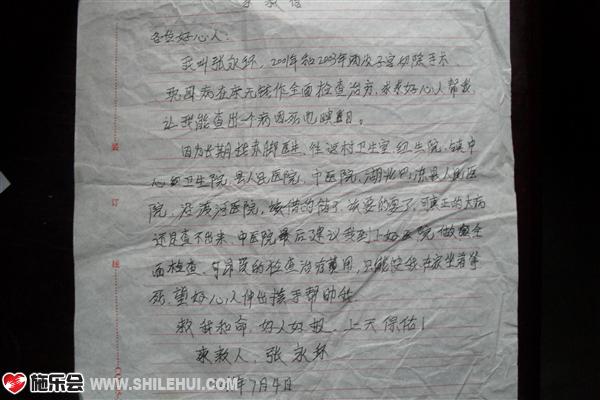 求救信
各位好心人：
我叫张永环，2001年和2003年两次子宫切除手术
现因病在床无钱作全面检查治疗，求求好心人帮我
让我能查出个病因死也瞑目。
因为长期找赤脚医生，往返村卫生室 卫生院，镇中
心 卫生院，县人民医院，中医院，湖北 县人民医
院，没 医院，该借的借了，该要的要了，可真正的大病
还是查不出来，中医院最后建议我到上好医院做 全
面检查，可昂贵的检查治疗费用，只能使我在家坐着等
死，望好心人伸出援手帮助我
救我和命，好人好报，上天保佑！
求救人：张永环
7月4日
施乐会 WWW.SHILEHUI.COM
装
订
线